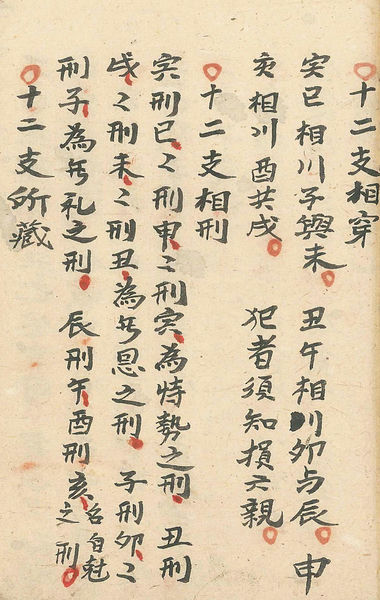 十二支相穿
寅巳相川子與未 丑午相川卯与辰 申
亥相川酉共戌 犯者須知損六親
十二支相刑
寅刑巳〻刑申〻刑寅為恃勢之刑 丑刑
戌〻刑未〻刑丑為无恩之刑 子刑卯〻
刑子為无礼之刑 辰刑午酉刑亥名自尅之刑
十二支所藏